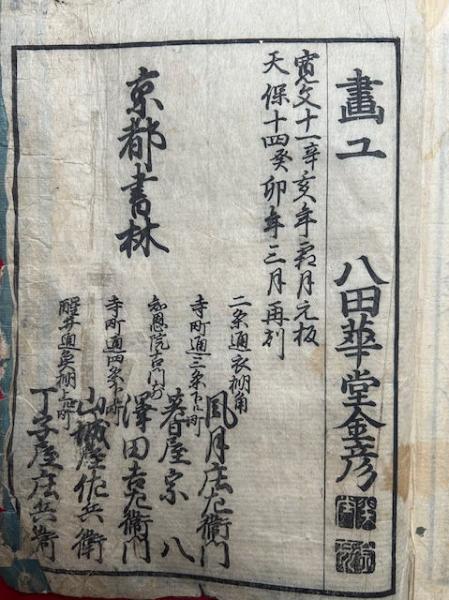 畫工 八田華堂金彦
寛文十一辛亥年霜月元板
天保十四癸卯年三月再刻
京都書林
二条通衣棚角
風月庄左衛門
寺町通三条下ル町
菱屋宗八
知恩院古門前
澤田吉左衛門
寺町通四条下ル町
山城屋佐兵衛
醒井通魚棚上ル町
丁子屋庄兵衛